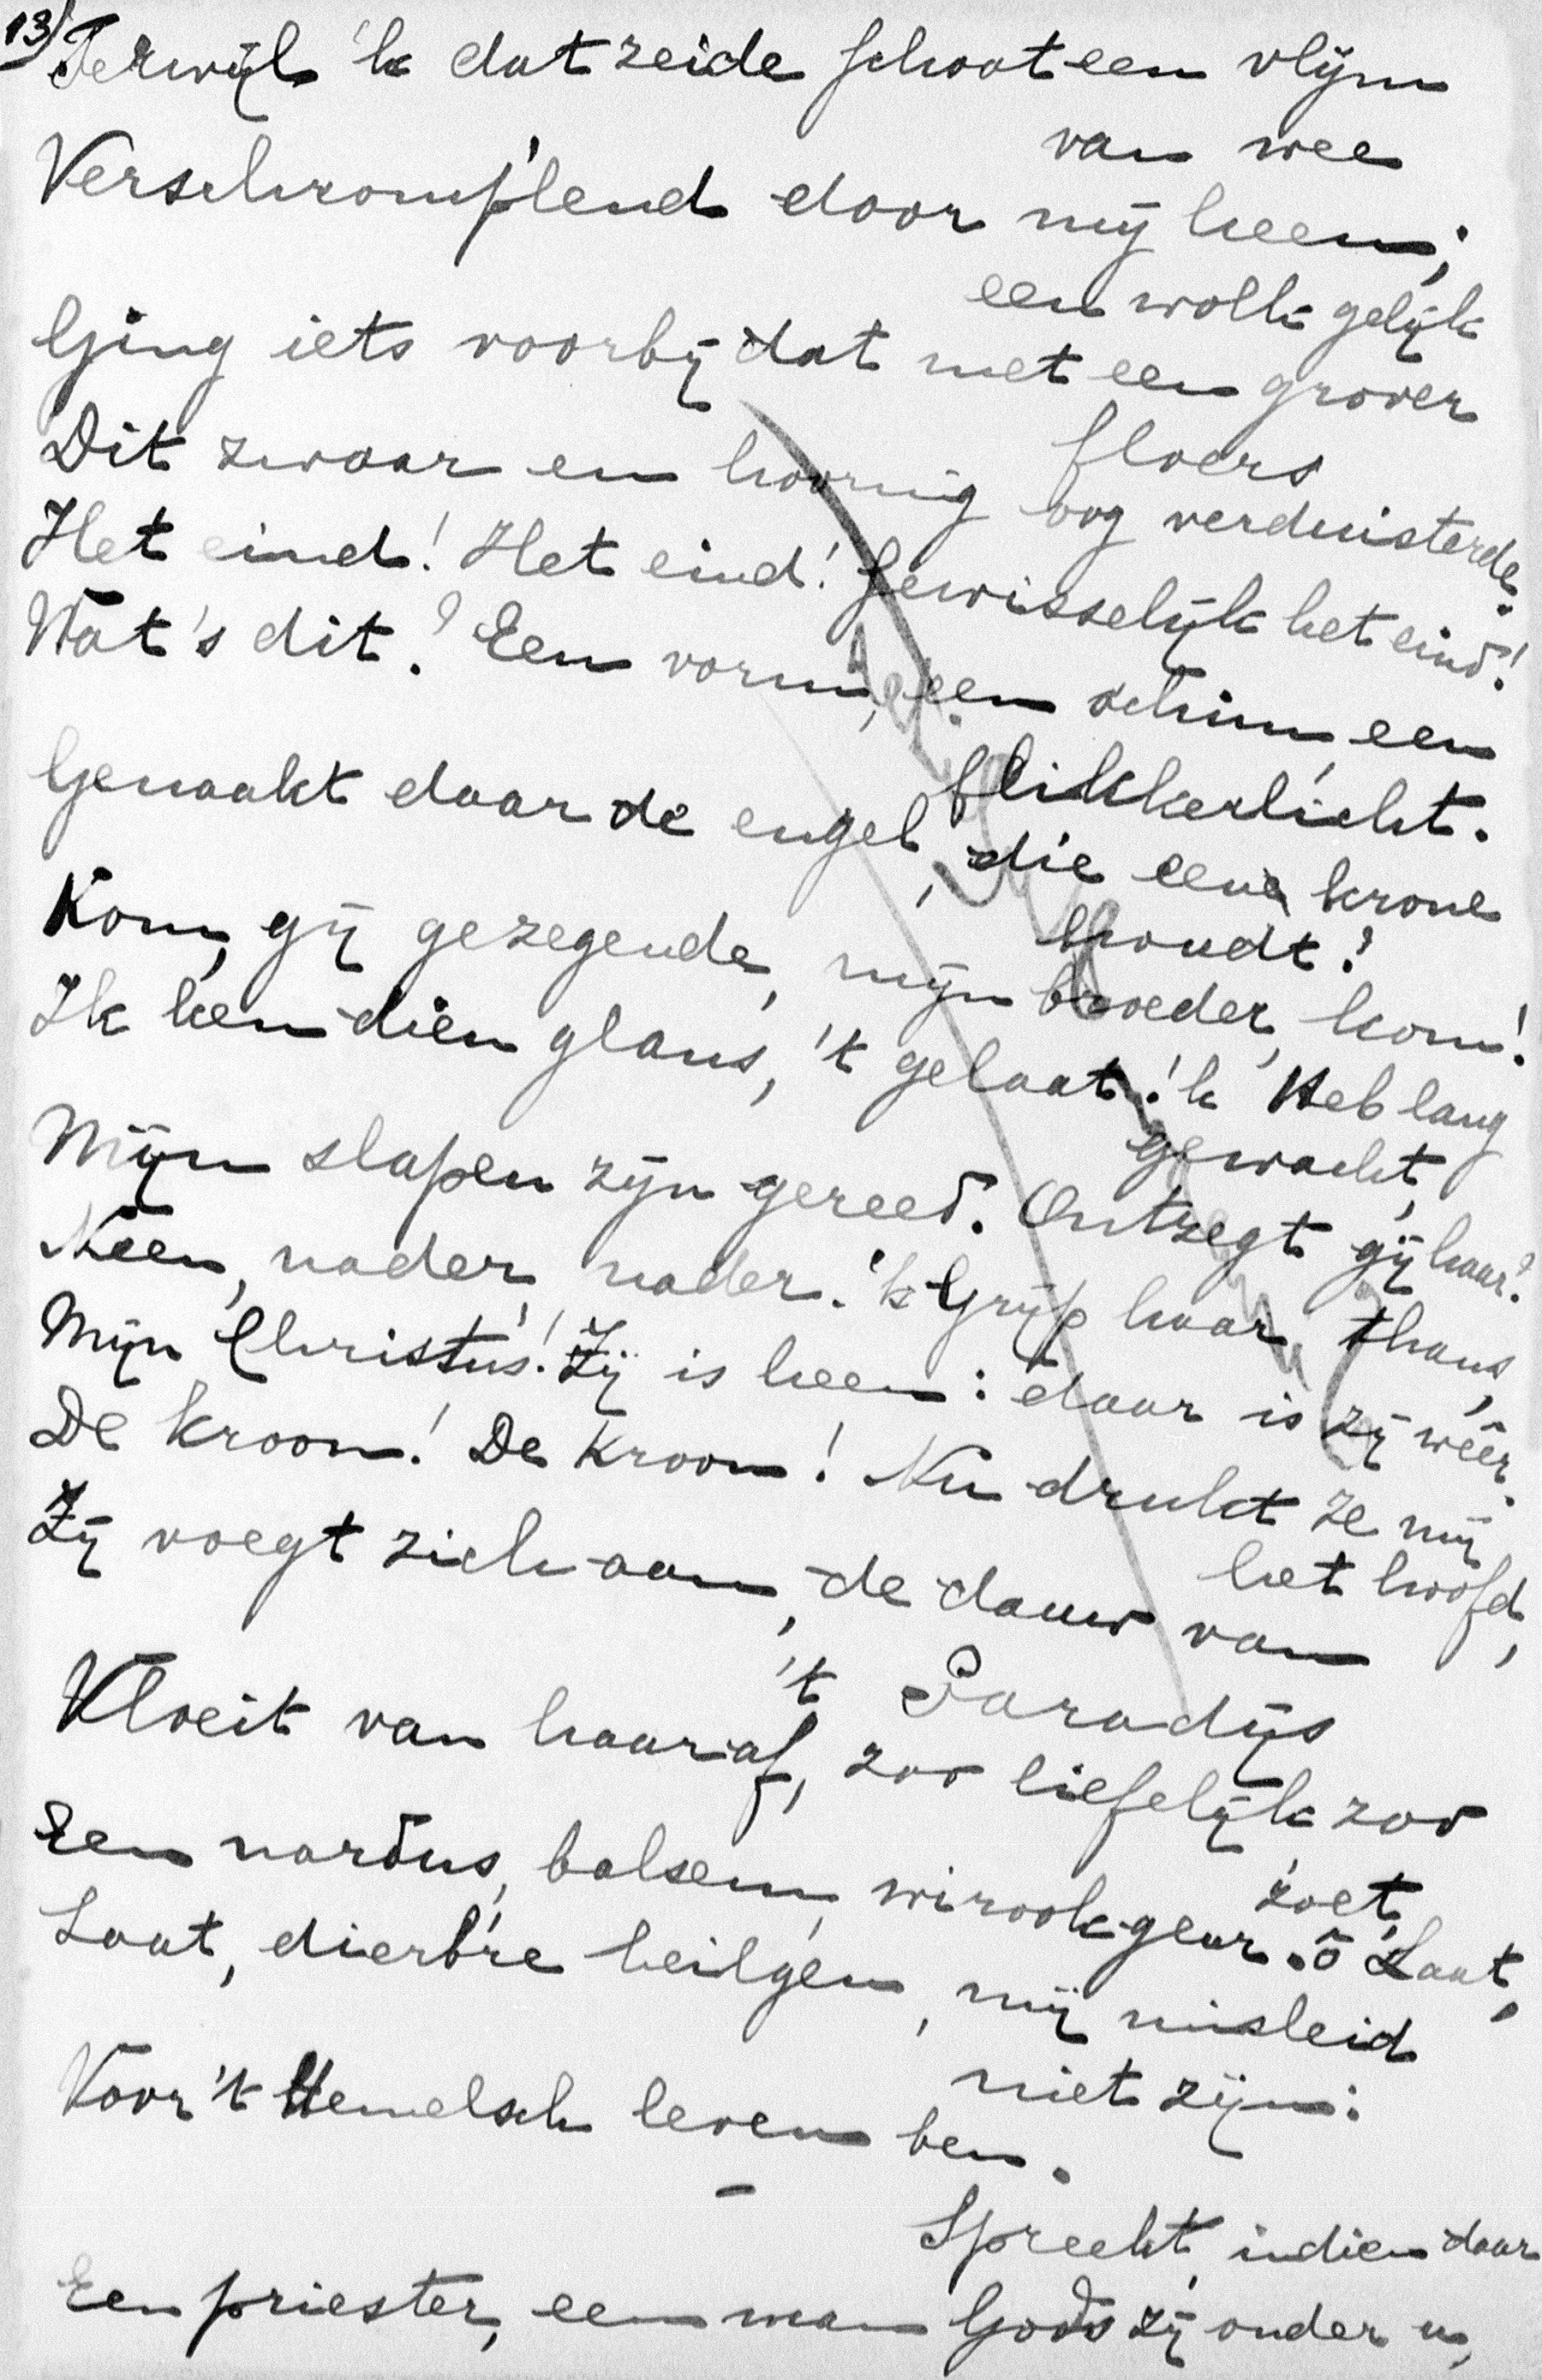 13)
Terwijl 'k dat zeide schoot een vlijm
van wee
Verschromp'lend door mij heen;
een wolk gelijk
Ging iets voorbij dat met een grover
floers
Dit zwaar en hoornig oog verduisterde.
Het eind! Het eind! Gewisselijk het eind!
Wat's dit? Een vorm, een schim, een
flikkerlicht.
Genaakt daar de engel, die eene krone
houdt?
Kom, gij gezegende, mijn broeder, kom!
Ik ken dien glans, 't gelaat! 'k Heb lang
gewacht,
Mijn slapen zijn gereed. Ontzegt gij haar?
Neen, nader, nader. 'k Grijp haar thans,
Mijn Christus! Zij is heen: daar is zij wêer.
De kroon! De Kroon! Nu drukt ze mij
het hoofd,
Zij voegt zich aan, de dauw van
't Paradijs
Vloeit van haar af, zoo liefelijk, zoo
zoet,
Een nardus, balsem, wirookgeur. ô Laat,
Laat, dierb're heil'gen, mij misleid
niet zijn:
Voor 't Hemelsch leven ben.
Spreekt, indien daar
Een priester, een man Gods zij onder u,